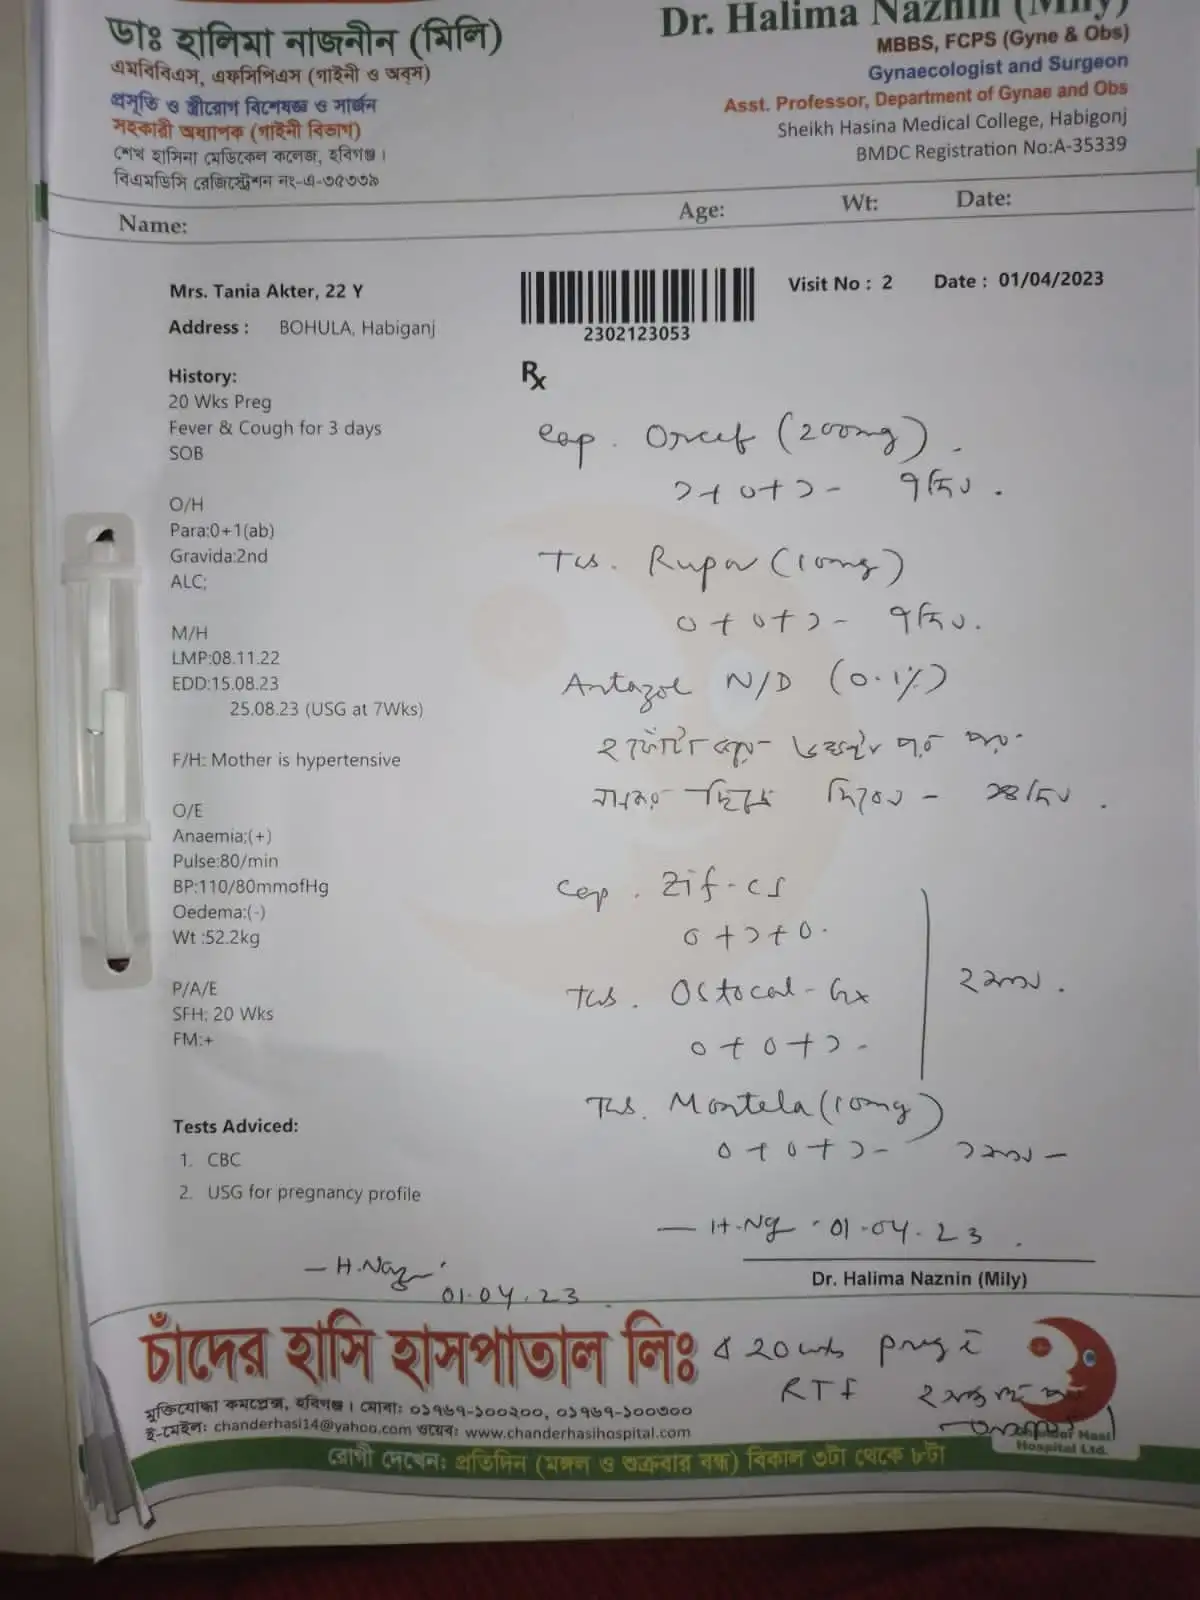 ডাঃ হালিমা নাজনীন (মিলি)
এমবিবিএস, এফসিপিএস (গাইনী ও অবস)
প্রসূতি ও স্ত্রীরোগ বিশেষজ্ঞ ও সার্জন
সহকারী অধ্যাপক (গাইনী বিভাগ)
শেখ হাসিনা মেডিকেল কলেজ, হবিগঞ্জ।
বিএমডিসি রেজিস্ট্রেশন নং-এ-৩৫৩৩৯
Dr. Halima Naznin (Mily)
MBBS, FCPS (Gyne & Obs)
Gynaecologist and Surgeon
Asst. Professor, Department of Gynae and Obs
Sheikh Hasina Medical College, Habigonj
BMDC Registration No:A-35339
Name: Age: Wt: Date:
Mrs. Tania Akter, 22 Y
Address : BOHULA, Habiganj
2302123053
Visit No : 2 Date : 01/04/2023
History:
20 Wks Preg
Fever & Cough for 3 days
SOB
O/H
Para:0+1(ab)
Gravida:2nd
ALC;
M/H
LMP:08.11.22
EDD:15.08.23
25.08.23 (USG at 7Wks)
F/H: Mother is hypertensive
O/E
Anaemia;(+)
Pulse:80/min
BP:110/80mmofHg
Oedema:(-)
Wt :52.2kg
P/A/E
SFH: 20 Wks
FM:+
Tests Adviced:
1. CBC
2. USG for pregnancy profile
Rx
Cap. Orcef (200mg)
১+০+১- ৭দিন.
Tab. Rupa (10mg)
০+০+১- ৭দিন.
Antazol N/D (0.1%)
২ ফোঁটা করে পর পর
নাকের ছিদ্রে দিবেন - ১৪দিন.
Cap. Zif-CI
০+১+০.
Tab. Ostocal-Gx
০+০+১-
২মাস.
Tab. Montela (10mg)
০+০+১- ১মাস-
01.04.23
Dr. Halima Naznin (Mily)
H.Naz
01.04.23
চাঁদের হাসি হাসপাতাল লিঃ
মুক্তিযোদ্ধা কমপ্লেক্স, হবিগঞ্জ। মোবা: ০১৭৬৭-১০০২০০, ০১৭৬৭-১০০৩০০
ই-মেইল: chanderhasi14@yahoo.com ওয়েব: www.chanderhasihospital.com
20 wks preg
RTI
Hospital Ltd.
রোগী দেখেন: প্রতিদিন (মঙ্গল ও শুক্রবার বন্ধ) বিকাল ৩টা থেকে ৮টা